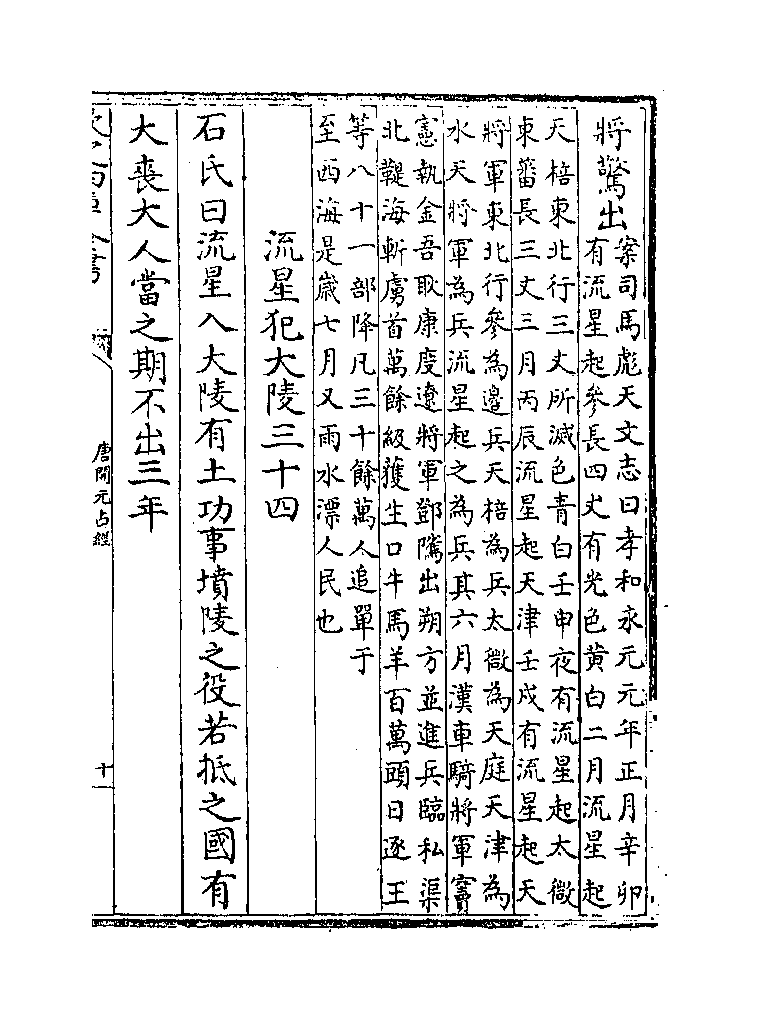 將驚出案司馬彪天文志曰孝和永元元年正月辛卯
有流星起參長四丈有光色黄白二月流星起
天棓東北行三丈所滅色青白壬申夜有流星起太微
東蕃長三丈三月丙辰流星起天津壬戌有流星起天
將軍東北行參為邊兵天棓為兵太微為天庭天津為
水天將軍為兵流星起之為兵其六月漢車騎將軍竇
憲執金吾耿康度遼將軍鄧隲出朔方並進兵臨私渠
北鞮海斬虜首萬餘級獲生口牛馬羊百萬頭日逐王
等八十一部降凡三十餘萬人追單于
至西海是歲七月又雨水漂人民也
流星犯大陵三十四
石氏曰流星入大陵有土功事墳陵之役若抵之國有
大喪大人當之期不出三年
唐開元占經
十一